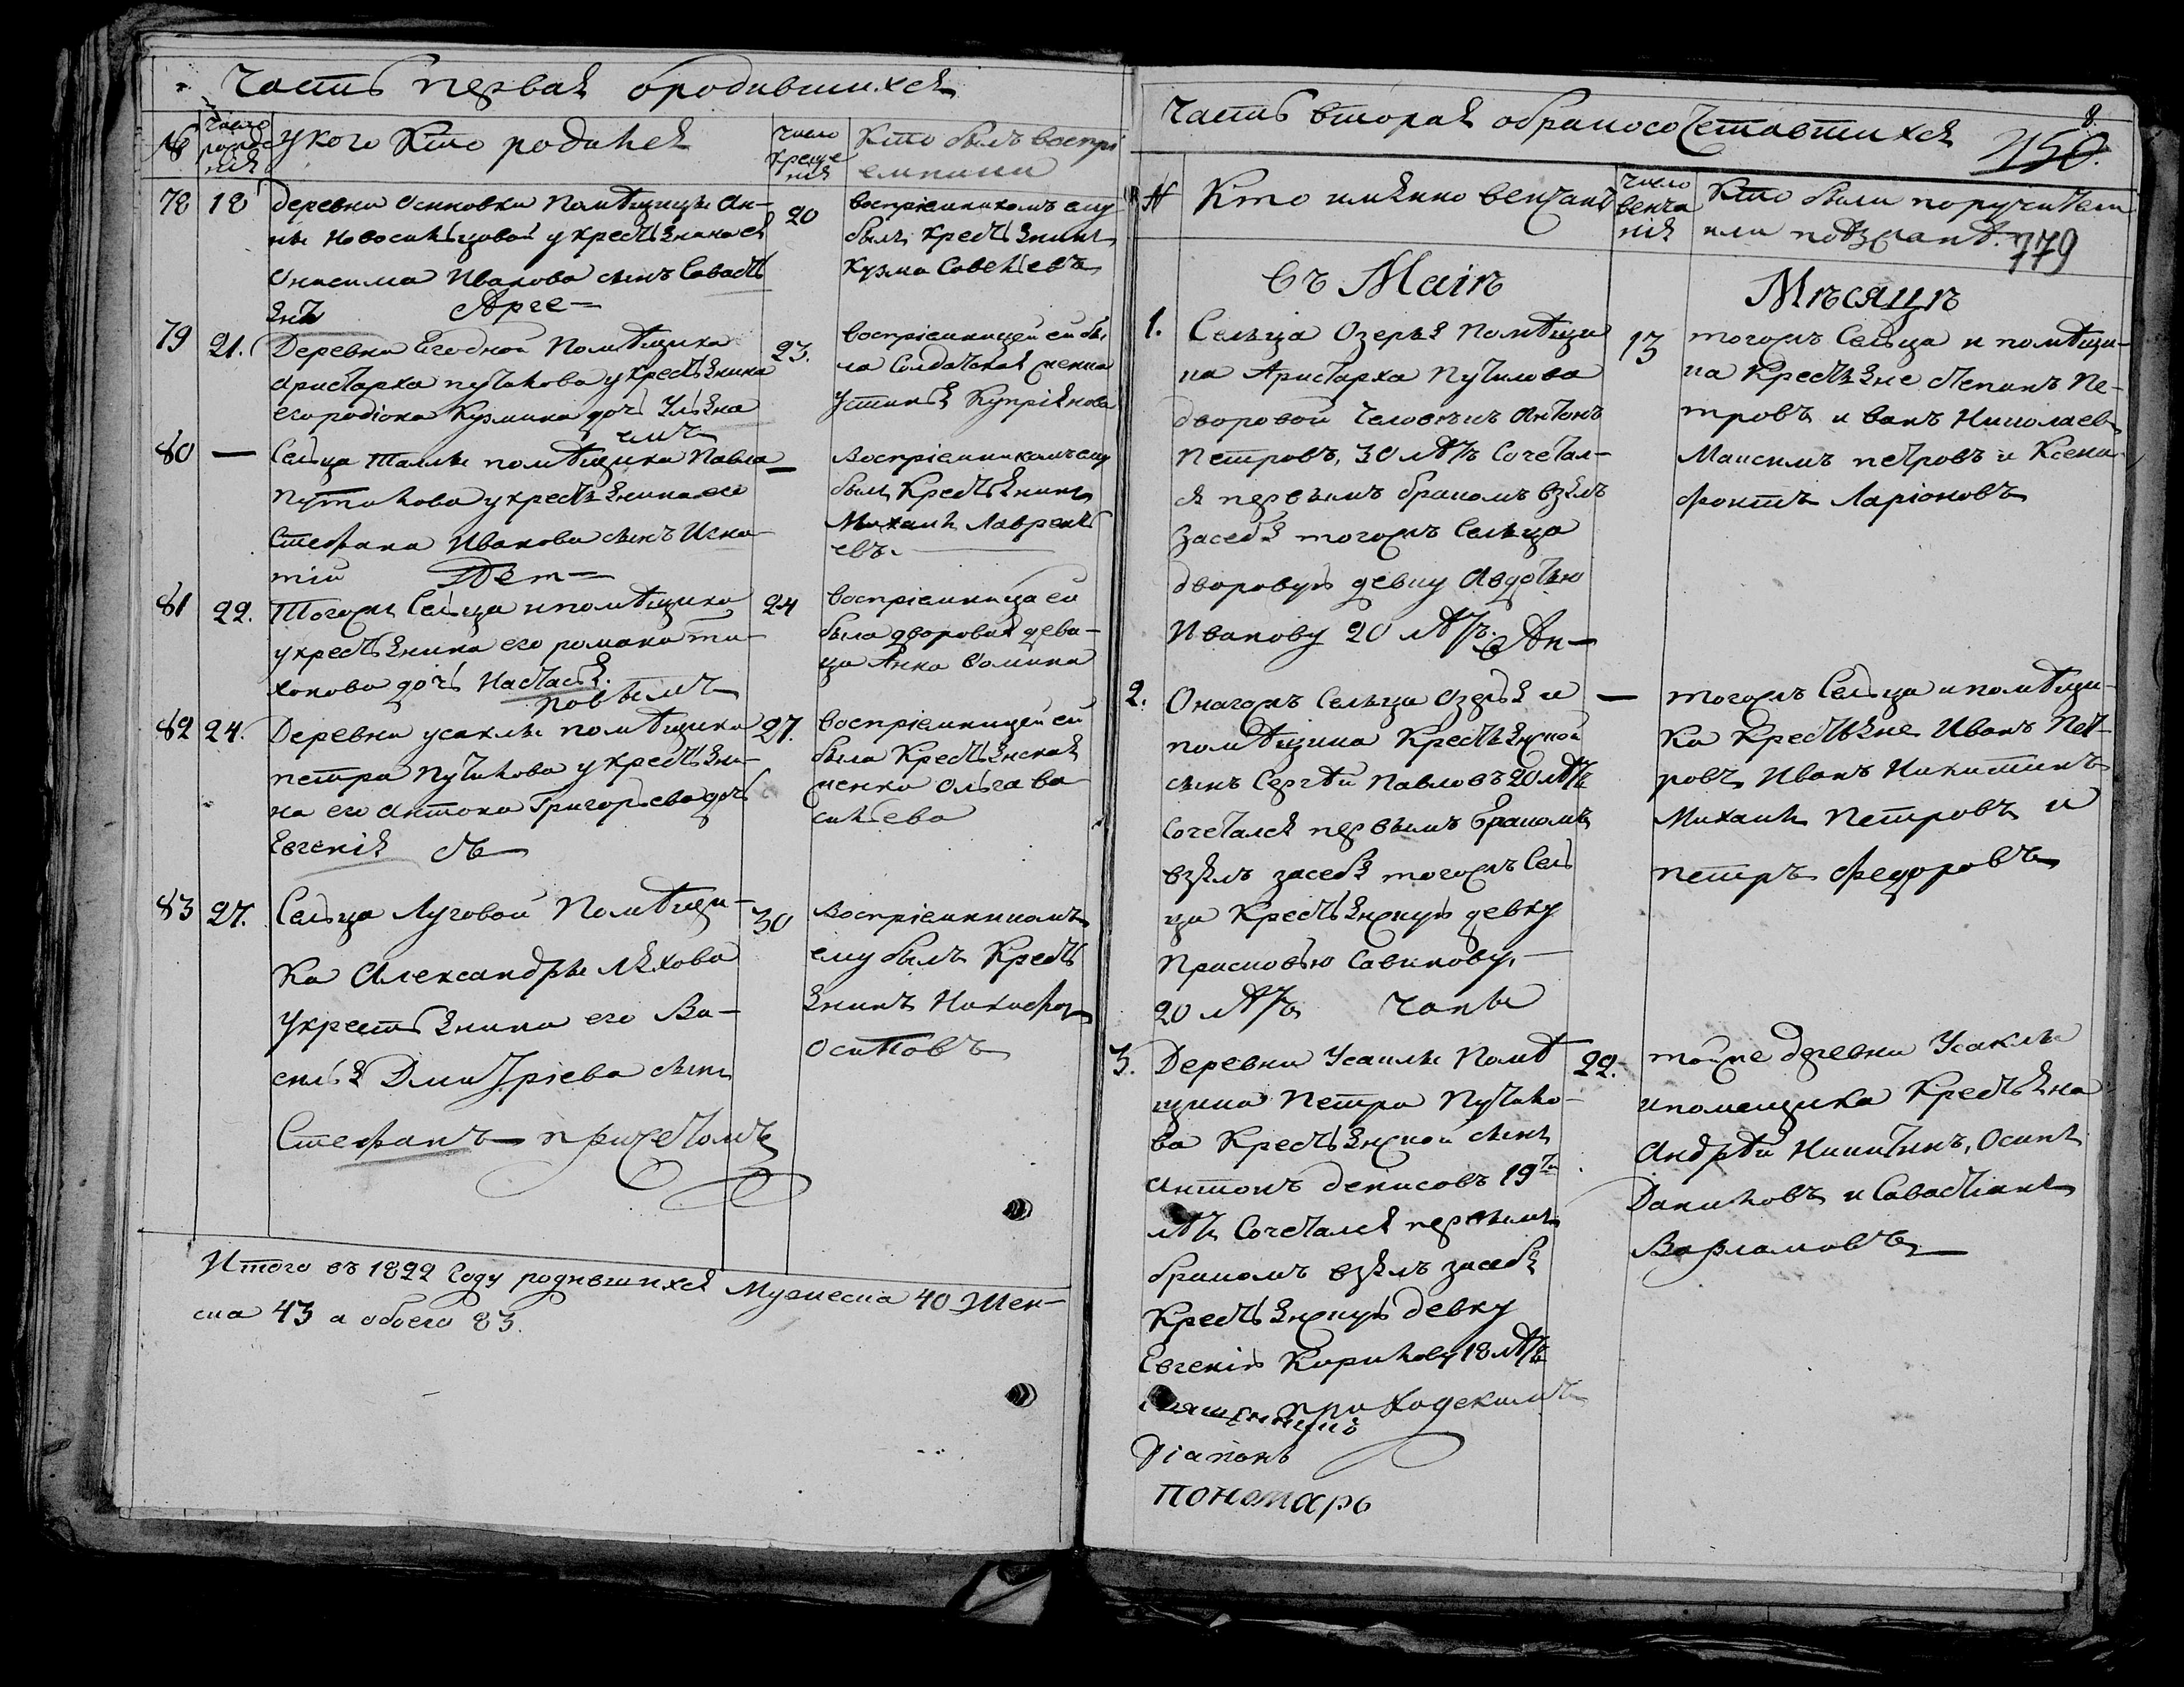 Часть первая ородившихся
№
число рожде нія
укого Кто родился
число креще нія
Кто былъ воспрі
емники
78
18
деревни Осиновки Помѣщицы Ан-
ны Новосильцовой у крестьянина ея
Онисима Иванова сынъ Савасть
янъ Архе-
20
воспріемникомъ ему
былъ крестьянинъ
Кузма Савельевъ
79
21.
Деревни Егодной Помѣщика
Аристарха путилова у крестьянина
его родіона Кузмина дочь Ульяна
23.
воспріемницей ей бы
ла Солдатская женка
Устинья Купріянова
80
—
емъ
Сельца Таллы помѣщика Павла
Путилова у крестьянина его
Стефана Иванова сынъ Игна-
тій
—
Воспріемникомъ ему
былъ Крестьянинъ
Михаилъ Лаврентъ
евъ.
81
22.
Тогожъ Сельца ипомѣщика
укрестьянина его романа ти-
хонова дочь Настасья.
24
воспріемница ей
была дворовая деви-
ца Анна Фомина
82
24.
повымъ
Деревни усаклы помѣщика
петра Путилова у крестьяни-
на его антона Григорьева дочь
Евгенія съ
27.
воспріемницей ей
была Крестьянская
женка Ольга ва
сильева
83
27.
Сельца Луговой Помѣщи-
ка Александры Ляхова
Укрестьянина его Ва-
силья Дмитріева сынъ
Стефанъ причетомъ
30
Воспріемникомъ
ему былъ Кресть
янинъ Никифоръ
Осиповъ
Итого въ 1822 Году родившихся Мужеска 40 Жен-
ска 43 а обоего 83.
Часть вторая обракосочетавшихся
8.
450.
№
Кто имянно венчанъ
число венча нія
Кто были поручители
или поѣзжанѣ.
779
Въ Маіѣ
Мѣсяцѣ
1.
Сельца Озерья Помѣщи
ка Аристарха Путилова
дворовой человекъ Антонъ
Петровъ, 30 лѣтъ Сочетал-
ся первымъ бракомъ взялъ
засебя тогожъ Сельца
дворовую девку Авдотью
Иванову 20 лѣтъ. Ан-
13
тогожъ Сельца и помѣщи-
ка Крестьяне степанъ Пе-
тровъ иванъ Николаевъ
Максимъ петровъ и Ксено-
фонтъ Ларіоновъ
2.
Онагожъ Сельца Озерья и
помѣщика Крестьянской
сынъ Сергѣй Павловъ 20 лѣтъ
Сочетался первымъ бракомъ
взялъ засебя тогожъ Сель
ца Крестьянскую девку
Прасковью Савинову,
20 лѣтъ
—
тогожъ Сельца ипомѣщи-
ка Крестьяне Иванъ Пет-
ровъ Иванъ Никитинъ
Михаилъ Петровъ и
петръ Федоровъ
3.
Деревни Усаклы Помѣ
щика Петра Путило-
ва Крестьянской сынъ
антонъ денисовъ 19ти
лѣтъ Сочетался первымъ
бракомъ взялъ засебя
Крестьянскую девку
Евгенію Кирилову 18 лѣтъ
Священникъ приходскимъ
Діаконъ
Пономарь
22.
тойже деревни Усаклы
ипомещика Крестьяна
Андрѣй Никитинъ, Осипъ
Даниловъ и Савастьянъ
Варламовъ